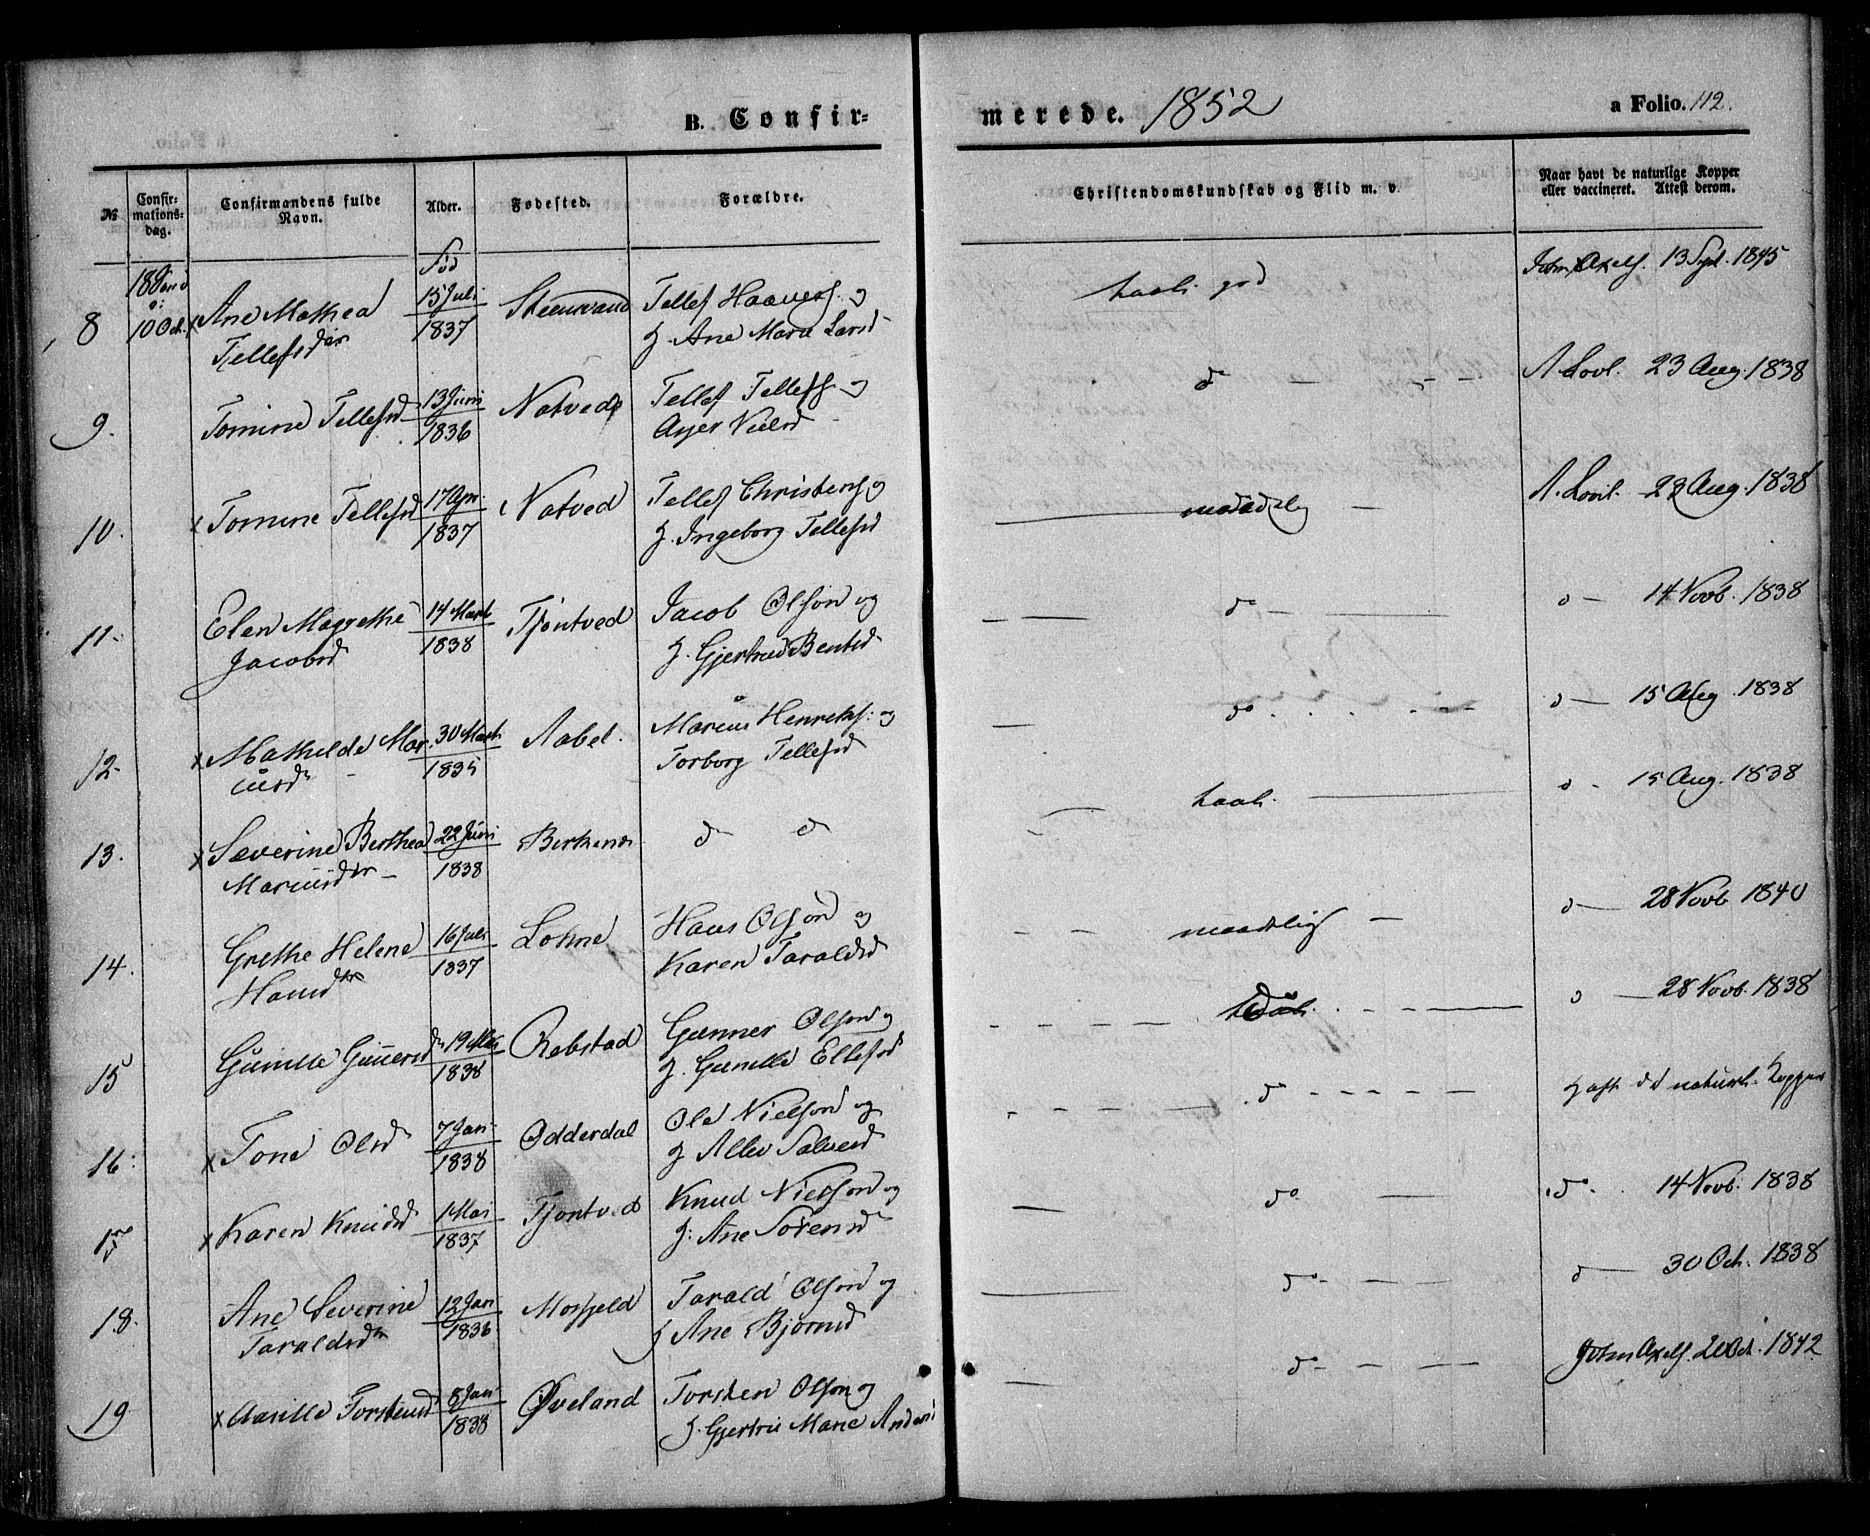 B. Confir-
merede. 1852
a Folio. 112.
№
Confir-
mations-
dag.
Confirmandens fulde
Navn.
Alder.
Fødested.
Forældre.
Christendomskundskab og Flid m. v.
Naar havt de naturlige Kopper
eller vaccineret. Attest derom.
Fød
8
10 Oct.
x Ane Mathea
Tellefsdtr
15 Juli
1837
Steensvand
Tellef Haavers. og
H. Ane Marie Larsd
taal. god
John Axels. 13 Sept. 1845
9.
Tomine Tellefsd
13 Juni
1836
Natved
Tellef Tellefs. og
Asjer Nielsd
do — - -
A. Lovl. 23 Aug. 1838
10.
x Tomine Tellefsd
17 Apr.
1837
Natved
Tellef Christens. og
H. Ingeborg Tellefsd
maadelig —
A. Lovl. 23 Aug. 1838
11.
Elen Magrethe
Jacobsd
14 Marts
1838
Tjøntved
Jacob Olsøn og
H. Gjertrud Bentsd
do —
do — 14 Novb. 1838
12.
x Mathilde Mar-
iusd
30 Marts
1835
Aabel.
Marius Henriks. og
Torborg Tellefsd
do
do — 15 Aug. 1838
13.
x Severine Berthea
Mariusdtr
22 Juni
1838
Birkenes
do do
taal.
do - 15 Aug. 1838
14.
Grethe Helene
Hansdtr
16 Juli
1837
Lohne
Hans Olsøn og
Karen Taraldsd
maadelig —
do — 28 Novb. 1840
15
Gunille Gunnersd
19 Mai
1838
Rebstad
Gunner Olsøn og
H. Gunille Ellefsd
taal.
do — 28 Novb. 1838
16.
x Tone Olsd
7 Jan.
1838
Odderdal
Ole Nielsøn og
H. Allev Salvesd
do
haft de naturl. Kopper
17
x Karen Knudsd
1 Mai
1837
Tjøntved
Knud Nielsøn og
H. Ane Sørensd
do —
do. 14 Novb. 1838
18.
Ane Severine
Taraldsd
12 Jan.
1836
Mosfjeld
Tarald Olsøn og
H. Ane Bjørnsd
do -
do — 30 Oct. 1838
19
x Aasille Torstensd
8 Jan.
1838
Øveland
Torsten Olsøn og
H. Gjertru Marie Andersd
do -
John Axels. 20 Oct. 1842